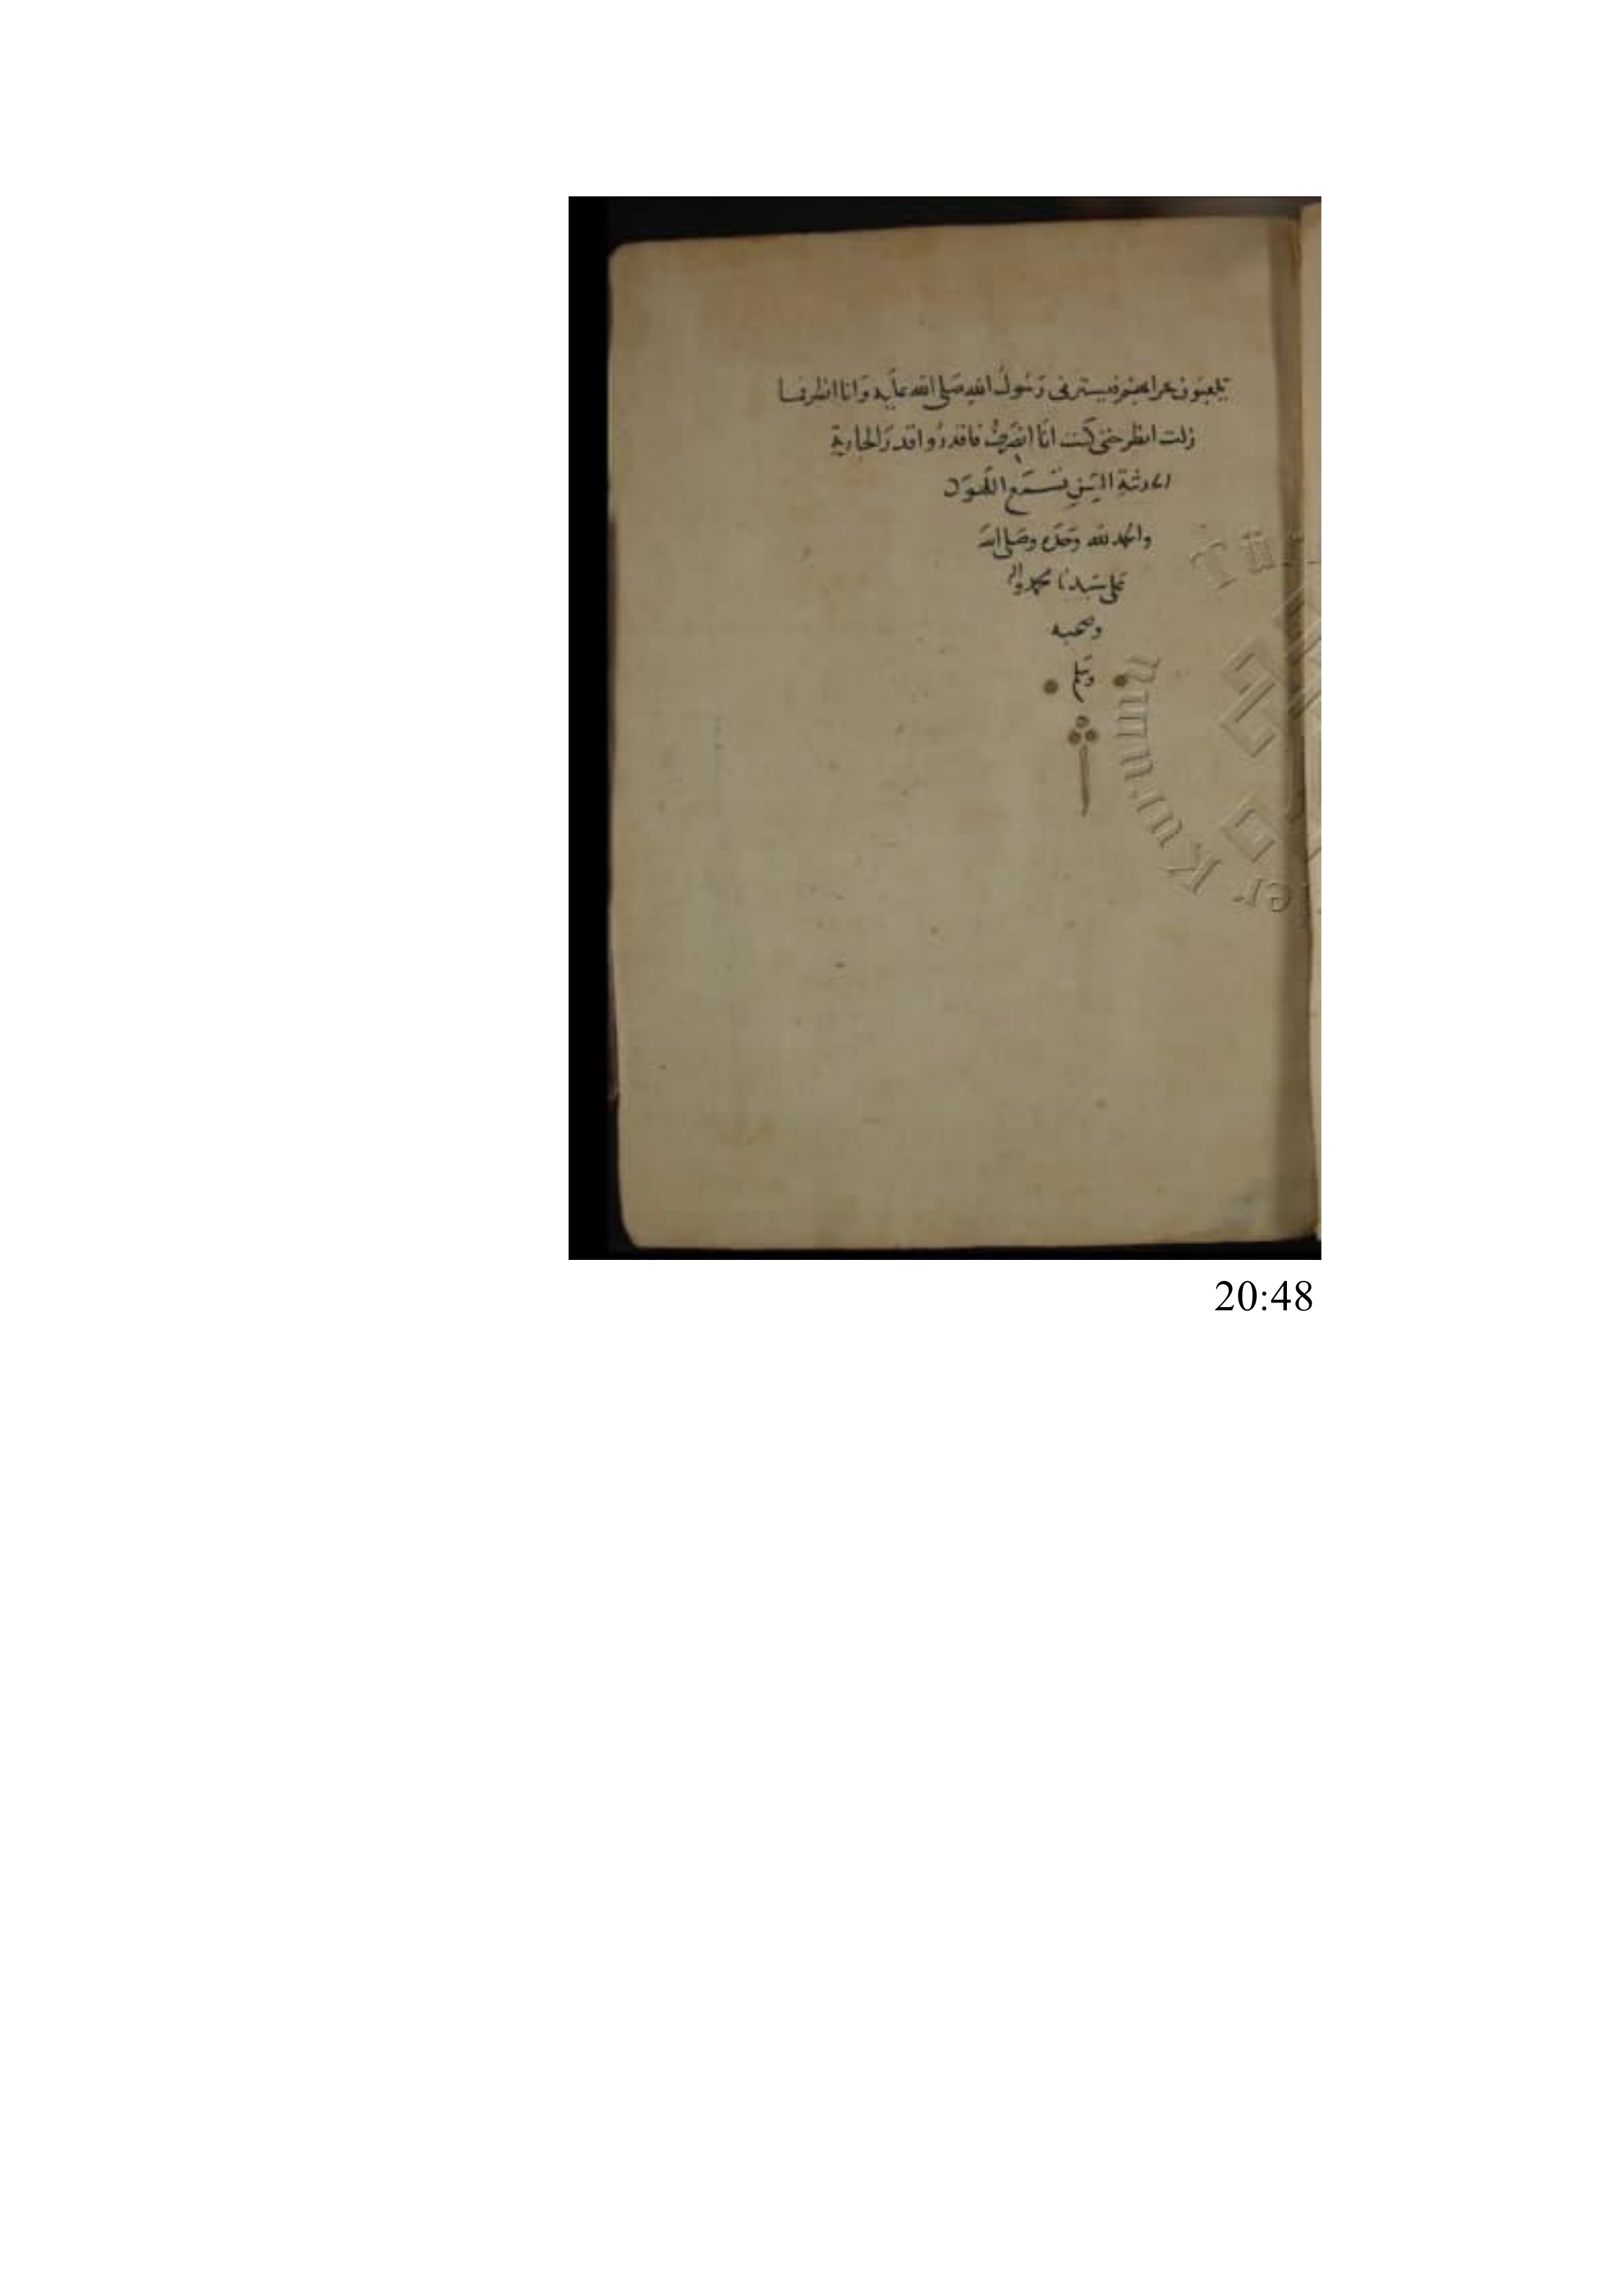 يلعبون بحرابهم فيسترني رسول الله صلى الله عليه وانا انظر فما
زلت انظر حتى كنت انا انصرف فاقدروا قدر الجارية
الحديثة السن تسمع اللهو
والحمد لله وحده وصلى الله
على سيدنا محمد واله
وصحبه
وسلم
20:48